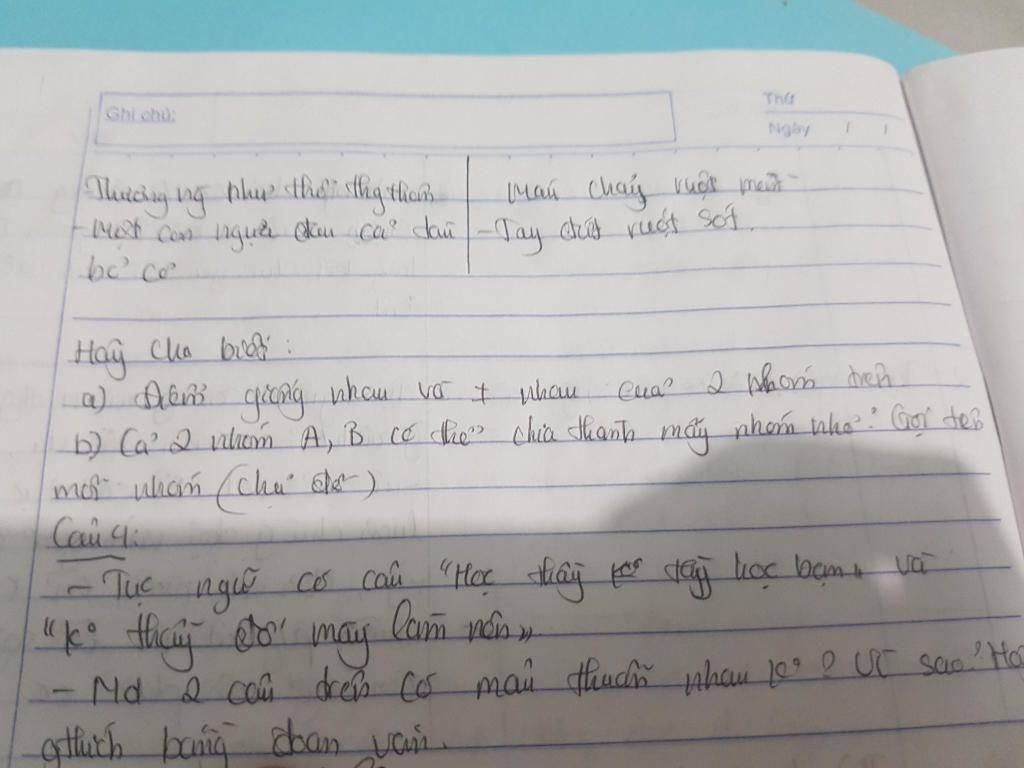 Ghi chú:
Thứ
Ngày / /
Thương ng như thể thg thân
Máu chảy ruột mềm
- Một con người đau cả tàu
- Tay đứt ruột sót.
bỏ cỏ
Hãy cho biết:
a) Điểm giống nhau và ≠ nhau của 2 nhóm trên
b) Cả 2 nhóm A, B có thể chia thành mấy nhóm nhỏ? Gọi tên
mỗi nhóm (chủ đề)
Câu 4:
- Tục ngữ có câu "Học thầy ko tày học bạn" và
"ko thầy đố mày làm nên"
- Nd 2 câu trên có mâu thuẫn nhau ko? Vì sao? Hã
gthích bằng đoạn văn.